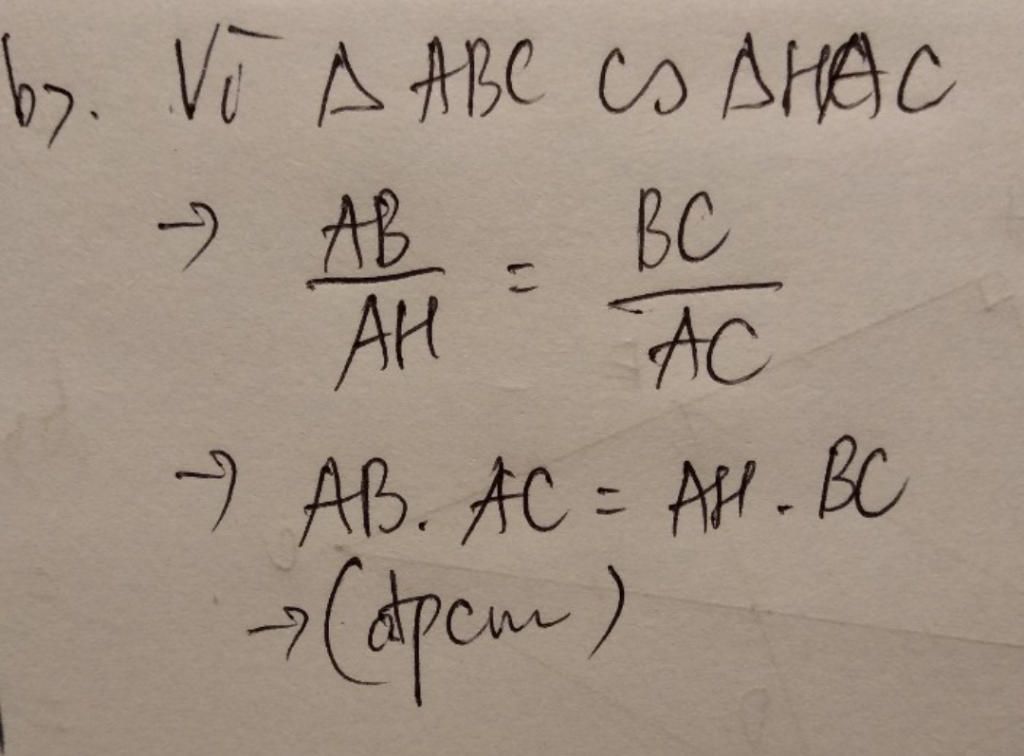 b). Vì Δ ABC ∽ ΔHAC
→ AB/AH = BC/AC
→ AB. AC = AH . BC
→ (đpcm)